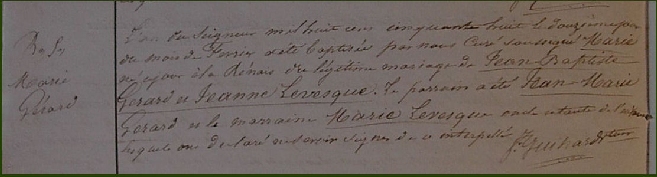 Bas
Marie
Gérard
L'an du Seigneur mil huit cent cinquante huit le douzième jour
du mois de Février a été baptisée par nous Curé soussigné Marie
née ce jour à la du légitime mariage de Jean Baptiste
Gérard et Jeanne Levesque. Le parrain a été Jean-Marie
Gérard et la marraine Marie Levesque oncle et tante de l'enfant
lesquels ont déclaré ne savoir signer de ce interpellés
Guihard